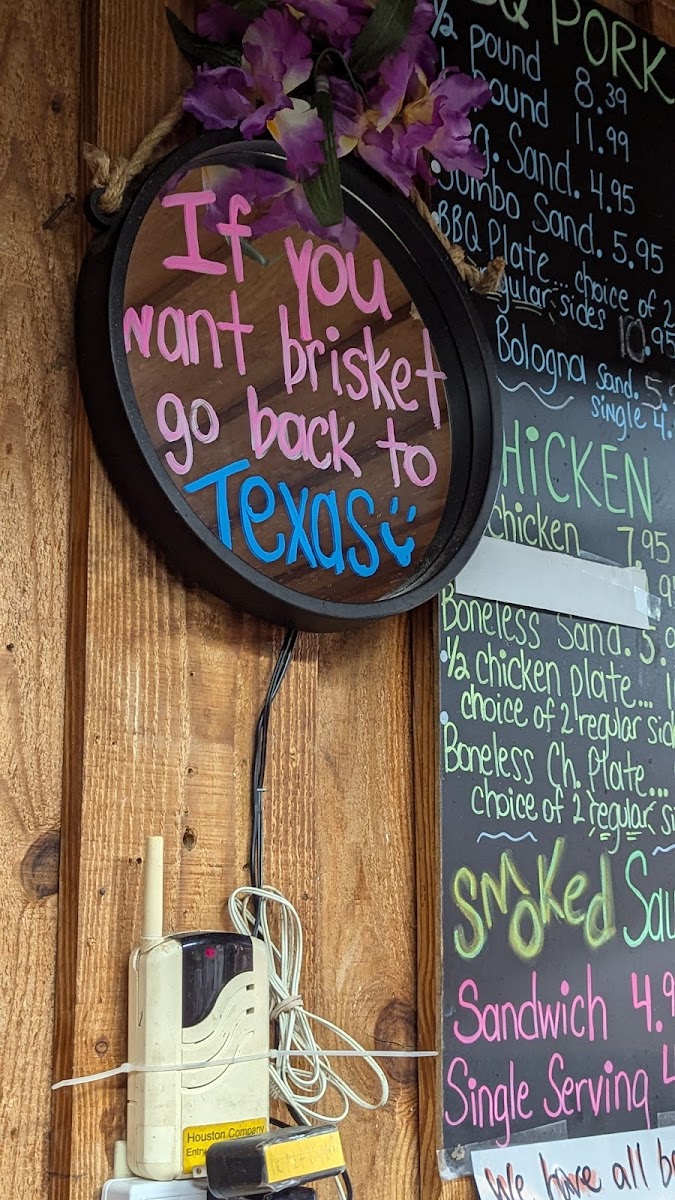 If you
want brisket
go back to
Texas
PORK
1/2 pound 8.39
pound 11.99
Sand. 4.95
Jumbo Sand. 5.95
BBQ Plate... choice of 2
regular sides 10.95
Bologna Sand. 5.
single 4.
CHICKEN
chicken 7.95
Boneless Sand. 5.9
1/2 chicken plate...
choice of 2 regular
Boneless Ch. Plate...
choice of 2 regular
Smoked
Sandwich 4.9
Single Serving 4
We have all
Houston Company
Entry